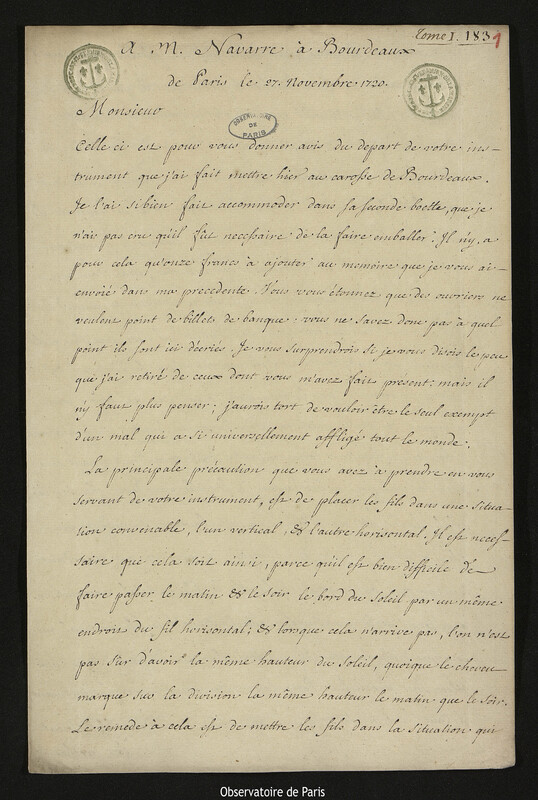 Tome I. 183
1
A M. Navarre à Bourdeaux
de Paris le 27. Novembre 1720.
OBSERVATOIRE
DE
PARIS
Monsieur
Celle ci est pour vous donner avis du depart de votre ins-
trument que j'ai fait mettre hier au carosse de Bourdeaux.
Je l'ai si bien fait accommoder dans sa seconde boette, que je
n'ai pas cru qu'il fût necessaire de la faire emballer. Il n'y, a
pour cela qu'onze francs à ajouter au memoire que je vous ai
envoié dans ma precedente. Vous vous étonnez que des ouvriers ne
veulent point de billets de banque. vous ne savez donc pas à quel
point ils sont ici décriés. Je vous surprendrois si je vous disois le peu
que j'ai retiré de ceux dont vous m'avez fait present: mais il
n'y faut plus penser. j'aurois tort de vouloir être le seul exempt
d'un mal qui a si universellement affligé tout le monde.
La principale précaution que vous avez à prendre en vous
servant de votre instrument, est de placer les fils dans une situa-
tion convenable, l'un vertical, & l'autre horisontal. Il est neces-
saire que cela soit ainsi, parce qu'il est bien difficile de
faire passer le matin & le soir le bord du soleil par un même
endroit du fil horisontal; & lorsque cela n'arrive pas, l'on n'est
pas sûr d'avoir la même hauteur du Soleil, quoique le cheveu
marque sur la division la même hauteur le matin que le soir.
Le remede à cela est de mettre les fils dans la situation qui
Observatoire de Paris